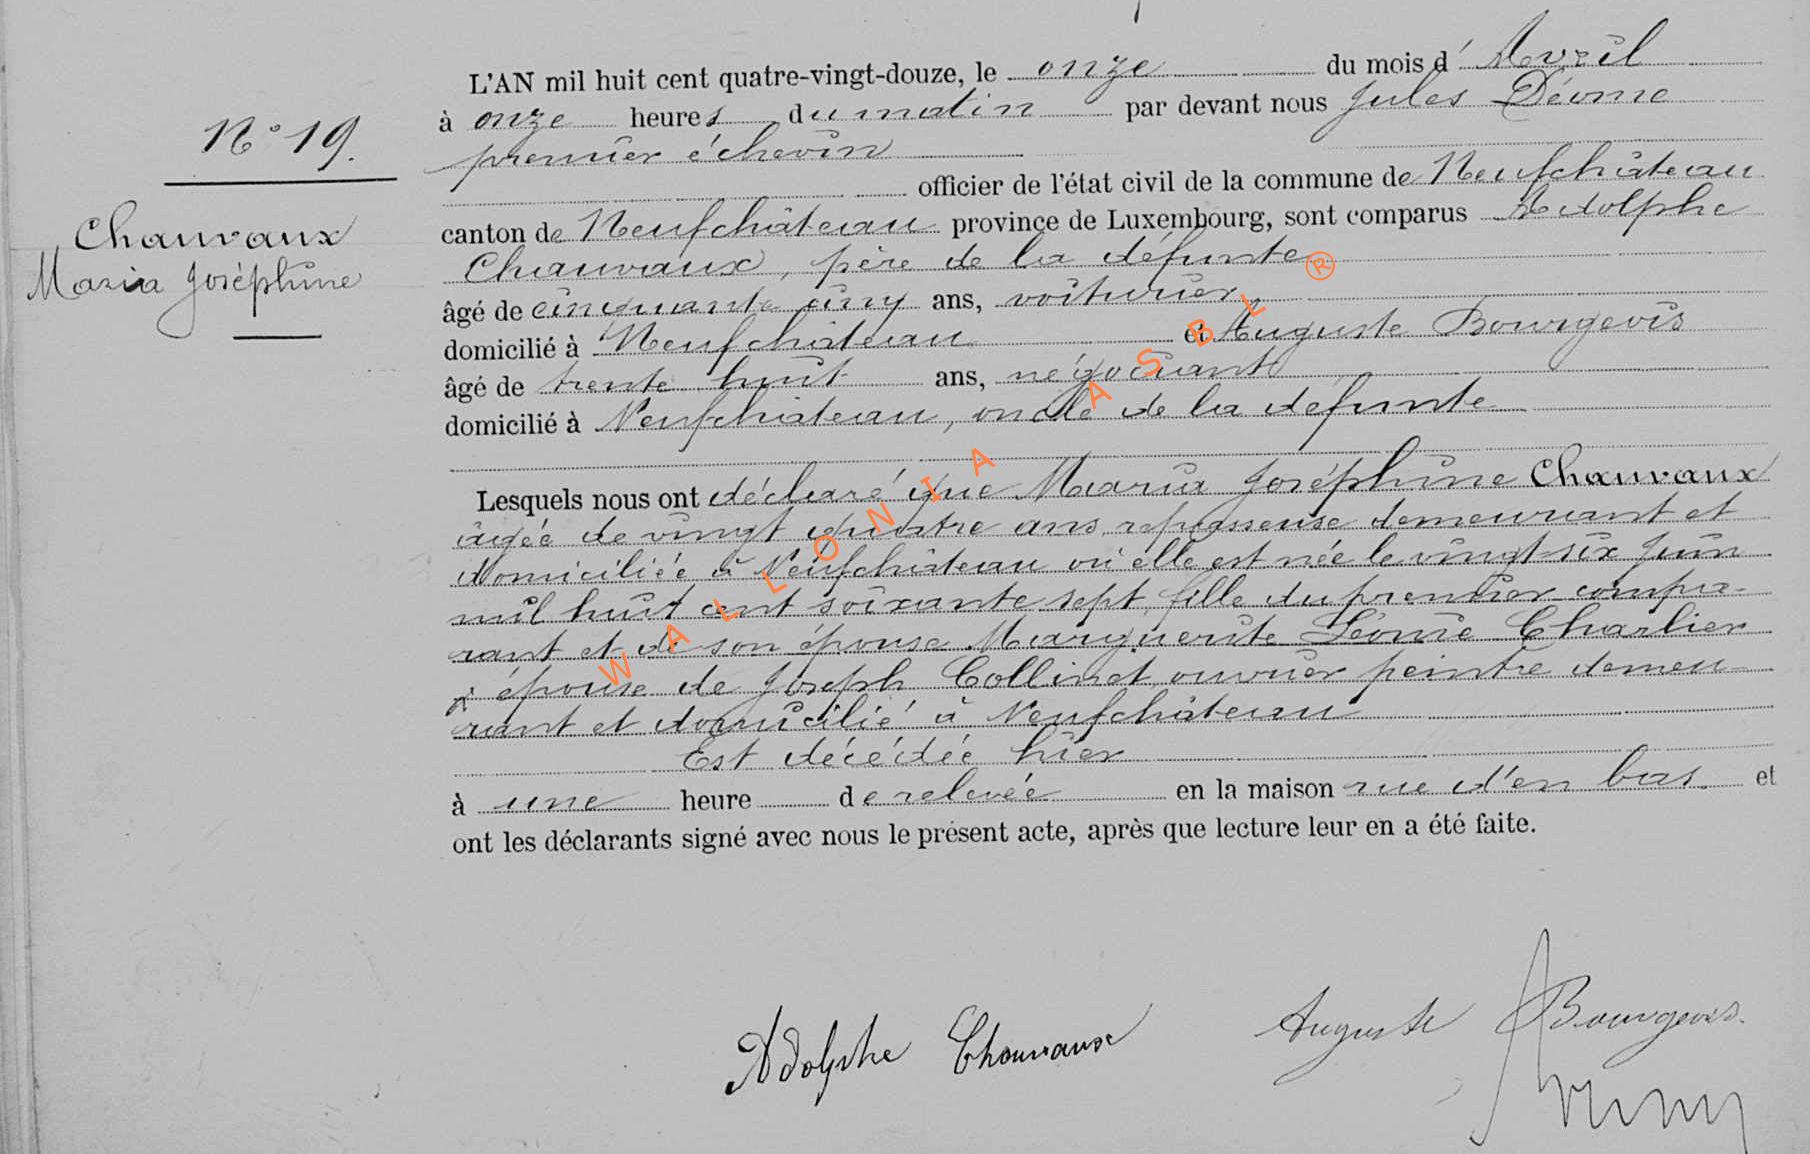 L'AN mil huit cent quatre-vingt-douze, le onze du mois d'Avril
à onze heures du matin par devant nous Jules
premier échevin
officier de l'état civil de la commune de Neufchâteau
canton de Neufchâteau province de Luxembourg, sont comparus Adolphe
Chauvaux, père de la défunte
âgé de cinquante cinq ans, voiturier
domicilié à Neufchâteau et Auguste Bourgeois
âgé de trente huit ans, négociant
domicilié à Neufchâteau, oncle de la défunte
Lesquels nous ont déclaré que Maria Joséphine Chauvaux
âgée de vingt quatre ans, repasseuse demeurant et
domiciliée à Neufchâteau où elle est née le vingt-six Juin
mil huit cent soixante sept, fille du premier compa-
rant et de son épouse Marguerite Léonie Charlier
épouse de Joseph Collinet ouvrier peintre demeu-
rant et domicilié à Neufchâteau
Est décédée hier
à une heure de relevée en la maison rue d'en bas et
ont les déclarants signé avec nous le présent acte, après que lecture leur en a été faite.
N° 19.
Chauvaux
Maria Joséphine
Adolphe Chauvaux
Auguste Bourgeois.
WALLONIA ASBL ®